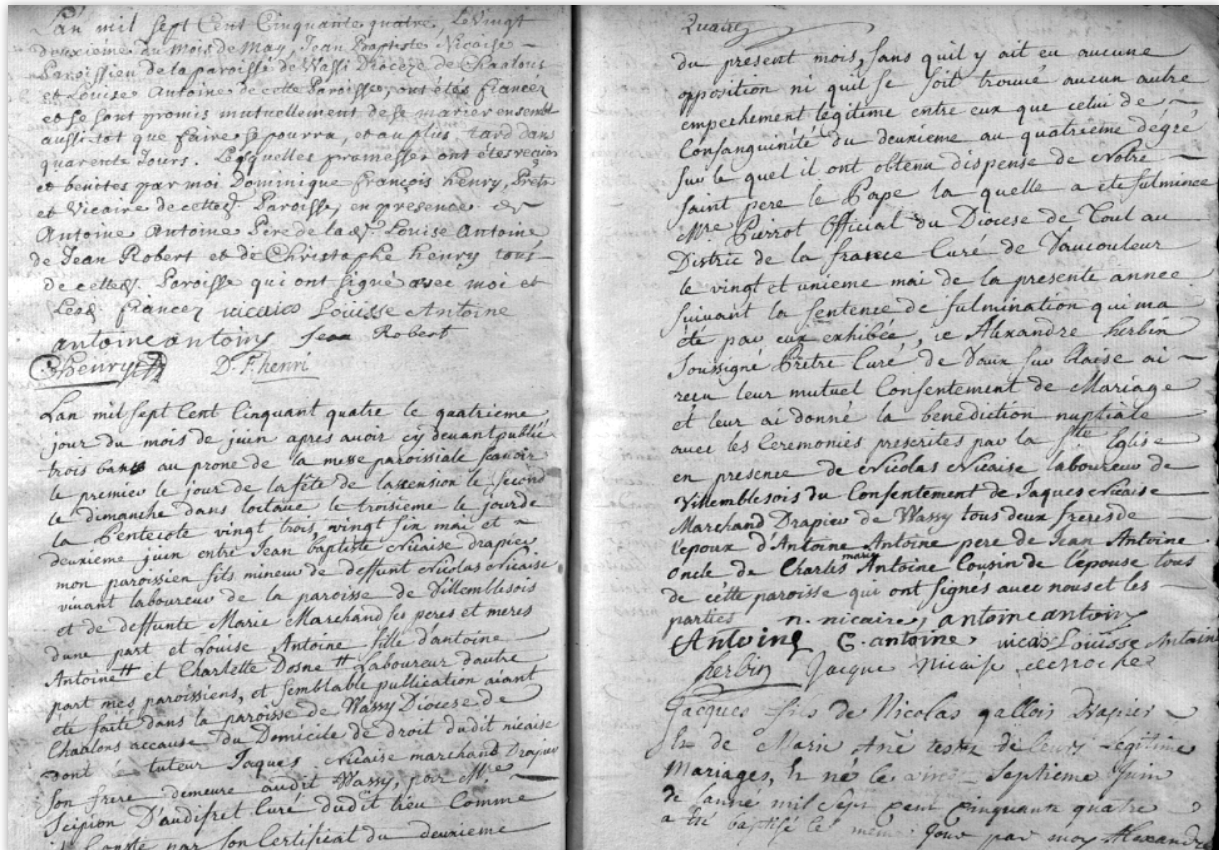 L'an mil sept Cent Cinquante quatre, Le vingt
deuxiéme du mois de May, Jean Baptiste Nicaise
Paroissien de la paroisse de Wassi Dioceze de Chaalons
et Louise Antoine de cette Paroisse, ont étés fiancéz
et se sont promis mutuellement de se marier ensemb
aussitot que faire se pourra, et au plus tard dans
quarente Jours. Lesquelles promesses ont étes recues
et benites par moi Dominique françois henry, Pretr
et Vicaire de cette d. Paroisse, en presence de
Antoine Antoine Pere de la d. Louise Antoine
de Jean Robert et de Christophe henry tous
de cette d. Paroisse qui ont signé avec moi et
Les d. fiancez Louisse Antoine
antoine antoine Jean Robert
C henry D. F. henri
Lan mil sept Cent Cinquant quatre le quatrieme
jour du mois de juin apres avoir cy devant publié
trois bans au prone de la messe paroissiale scavoir
le premier le jour de la fete de lascension le second
le dimanche dans loctave le troisieme le jour de
la Pentecote vingt trois, vingt six mai et
deuxieme juin entre Jean baptiste Nicaise drapier
mon paroissien fils mineur de deffunt Nicolas Nicaise
vivant laboureur de la paroisse de Villemblesois
et de deffunte Marie Marchand ses peres et meres
dune part et Louise Antoine fille dantoine
Antoine et Charlette Desne Laboureur dautre
part mes paroissiens, et semblable publication aiant
été faite dans la paroisse de Wassy Diocese de
Chaalons accause du Domicile de droit dudit nicaise
dont é tuteur Jaques Nicaise marchand Drapier
son frere demeure audit Wassy, par Mre
Scipion D'audifret Curé dudit lieu Comme
il Conste par son Certificat du deuxieme
quatre
du present mois, sans quil y ait eu aucune
opposition ni quil se soit trouvé aucun autre
empechement légitime entre eux que celui de
Consanguinité du deuxieme au quatrieme dégré
sur le quel il ont obtenu dispense de Notre
saint pere le Pape la quelle a été fulminée
Mre Pierrot Official du Diocese de Toul au
Distric de la france Curé de Vaucouleur
le vingt et unieme mai de la presente année
suivant la sentence de fulmination qui ma
été par eux exhibée, ie Alexandre herbin
soussigné Prêtre Curé de Vaux sur blaise ai
recu leur mutuel Consentement de Mariage
et leur ai donné la benediction nuptiale
avec les Ceremonies prescrites par la ste Eglise
en presence de Nicolas Nicaise laboureur de
Villemblesois du Consentement de Jaques Nicaise
Marchand Drapier de Wassy tous deux freres de
l'epoux d'Antoine Antoine pere de Jean Antoine
Oncle de Charles marie Antoine Cousin de l'epouse tous
de cette paroisse qui ont signés avec nous et les
parties n. nicaise, antoine antoine
Antoine C. antoine Louïsse Antoine
herbin Jacque Nicaise
Jacques fils de Nicolas gallois Drapier
de Marie leurs legitime
Mariages, né le vint Septieme Juin
de lanné mil sept Cent Cinquant quatre
a été baptisé le meme Jour par moy Alexandre